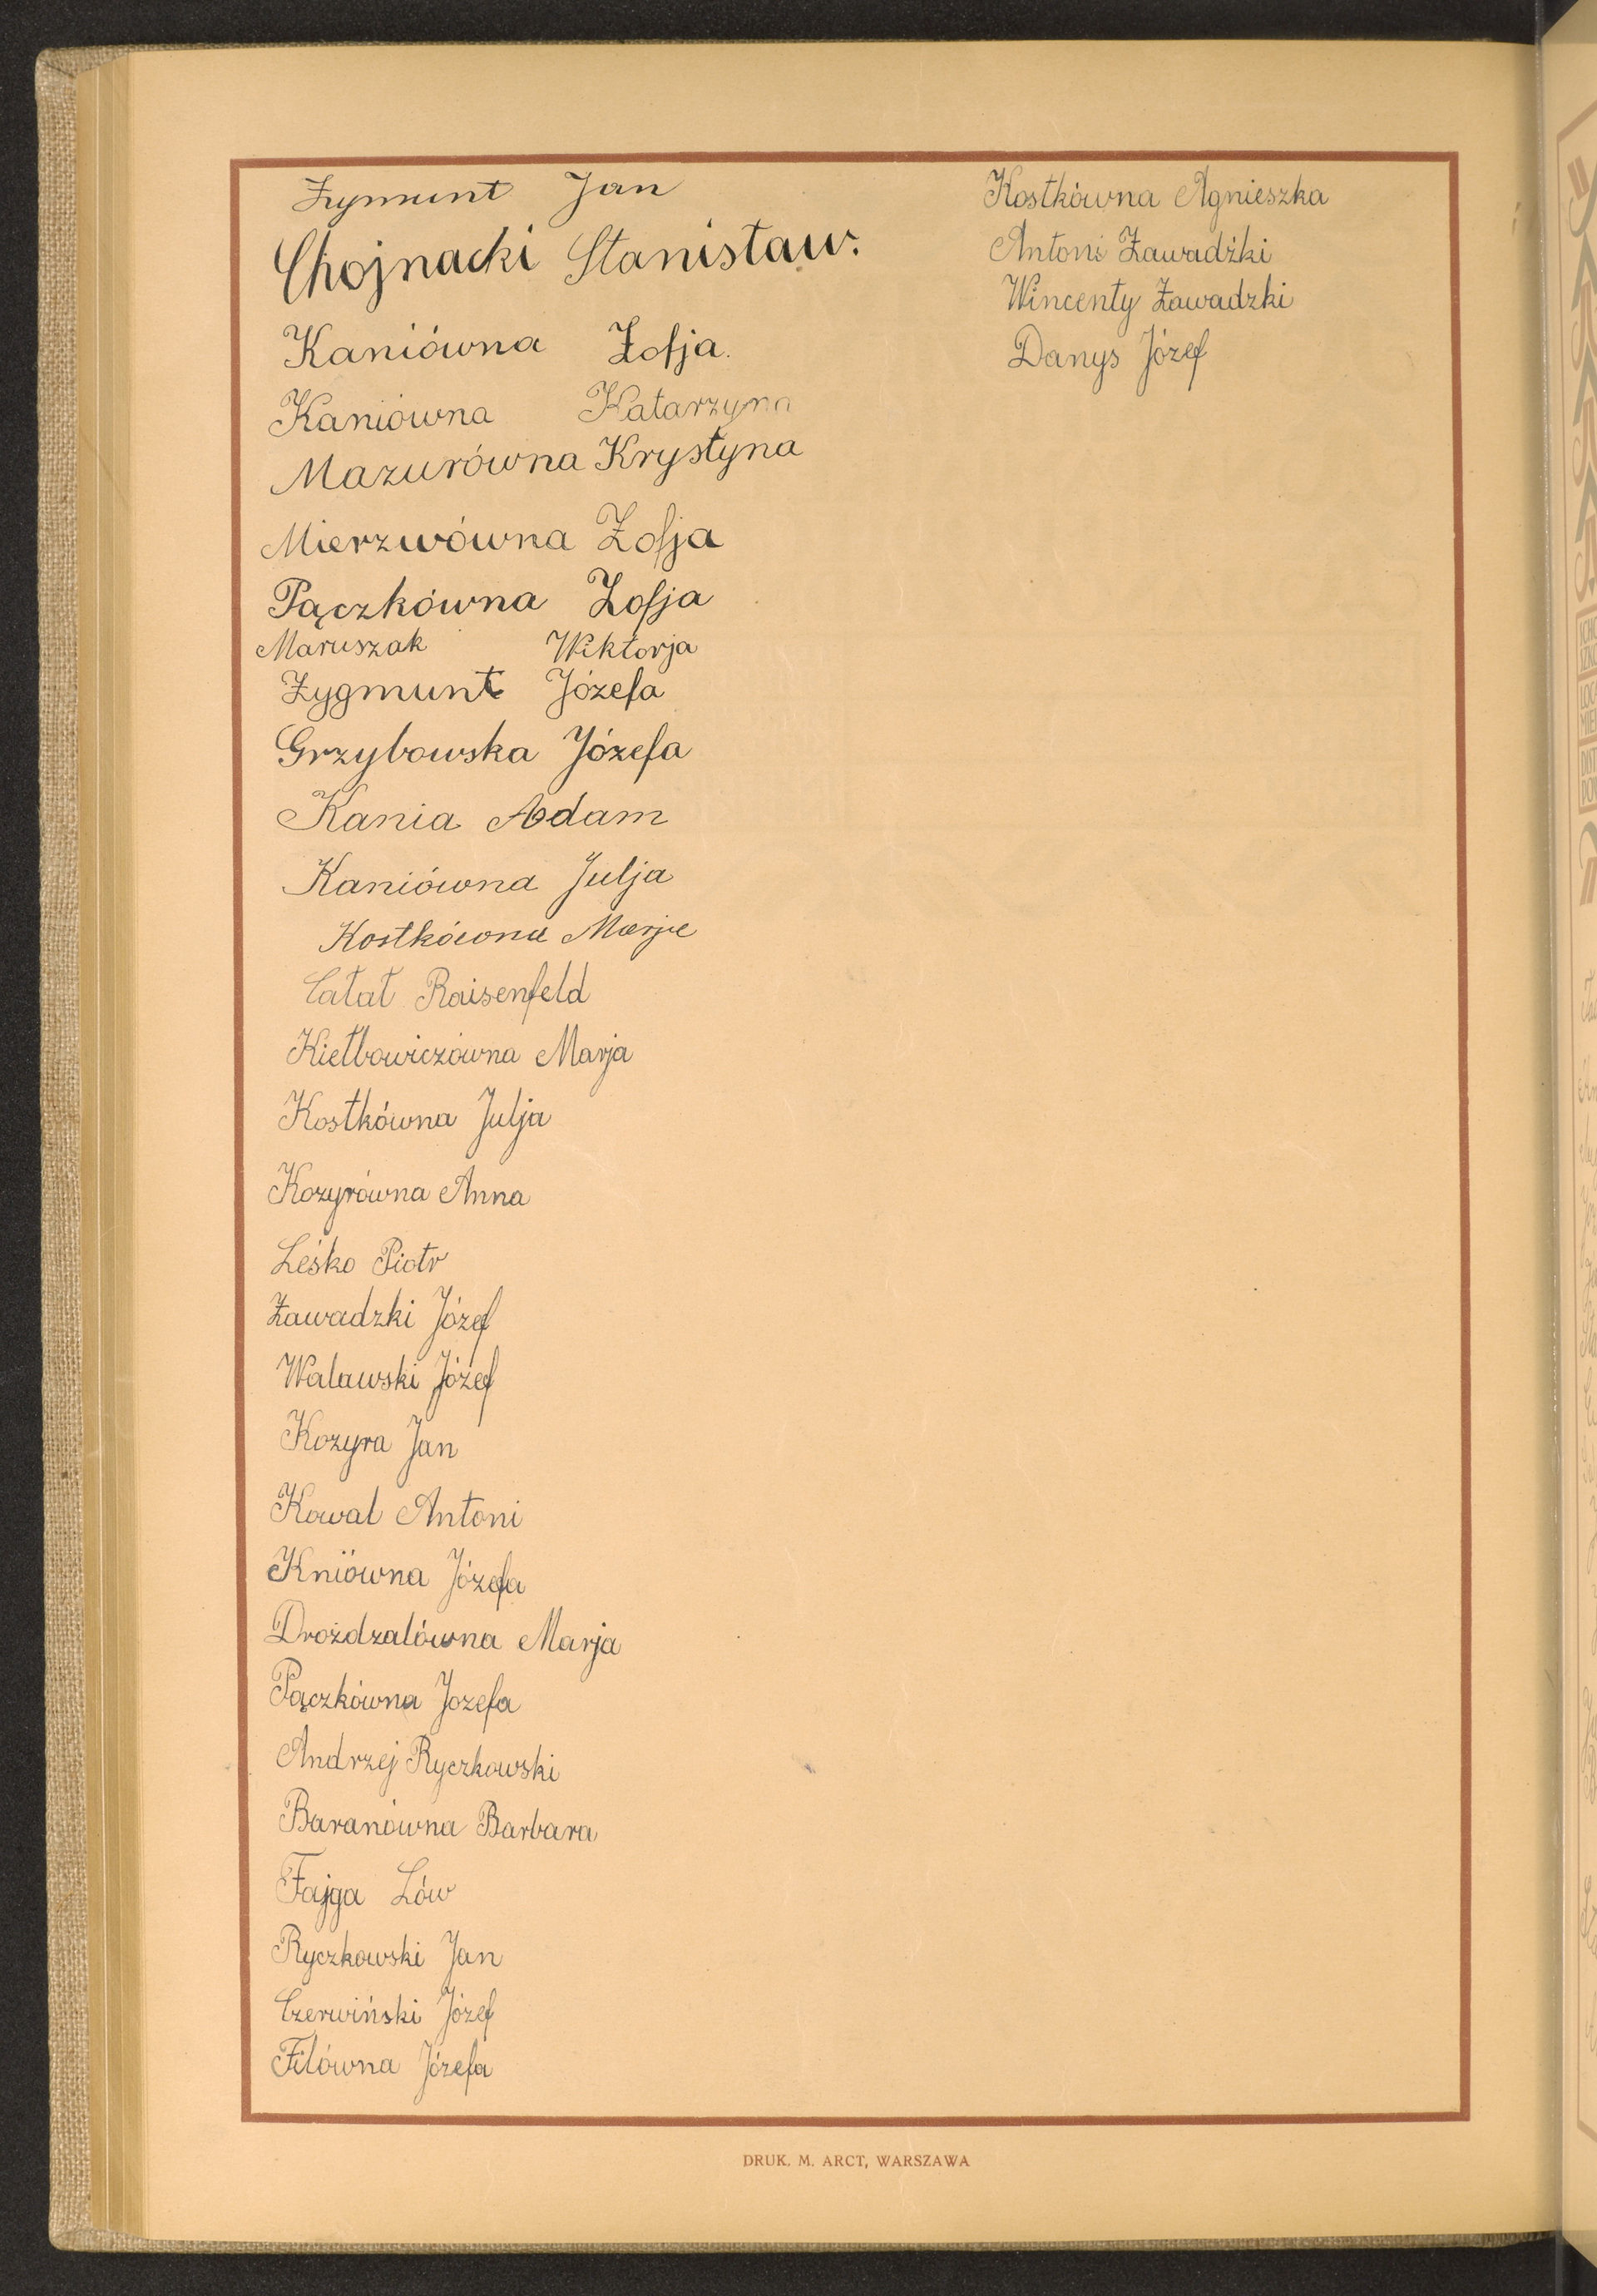 Zymunt Jan
Chojnacki Stanisław.
Kaniówna Zofja.
Kaniówna Katarzyna
Mazurówna Krystyna
Mierzwówna Zofja
Pączkówna Zofja
Maruszak Wiktorja
Zygmunt Józefa
Grzybowska Józefa
Kania Adam
Kaniówna Julja
Kostkówna Marja
Całat Raisenfeld
Kiełbowiczówna Marja
Kostkówna Julja
Kozyrówna Anna
Leśko Piotr
Zawadzki Józef
Walawski Józef
Kozyra Jan
Kowal Antoni
Kniówna Józefa
Drożdzalówna Marja
Pączkówna Jozefa
Andrzej Ryczkowski
Baranówna Barbara
Fajga Lów
Ryczkowski Jan
Czerwiński Józef
Filówna Józefa
Kostkówna Agnieszka
Antoni Zawadżki
Wincenty Zawadzki
Danys Józef
DRUK. M. ARCT, WARSZAWA